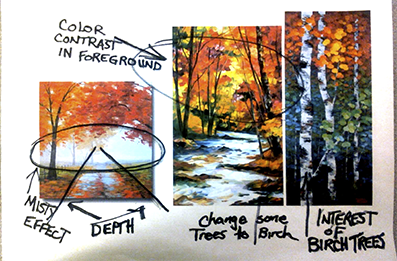 COLOR
CONTRAST
IN FOREGROUND
MISTY
EFFECT
DEPTH
Change some
Trees to Birch
INTEREST
OF
BIRCH TREES